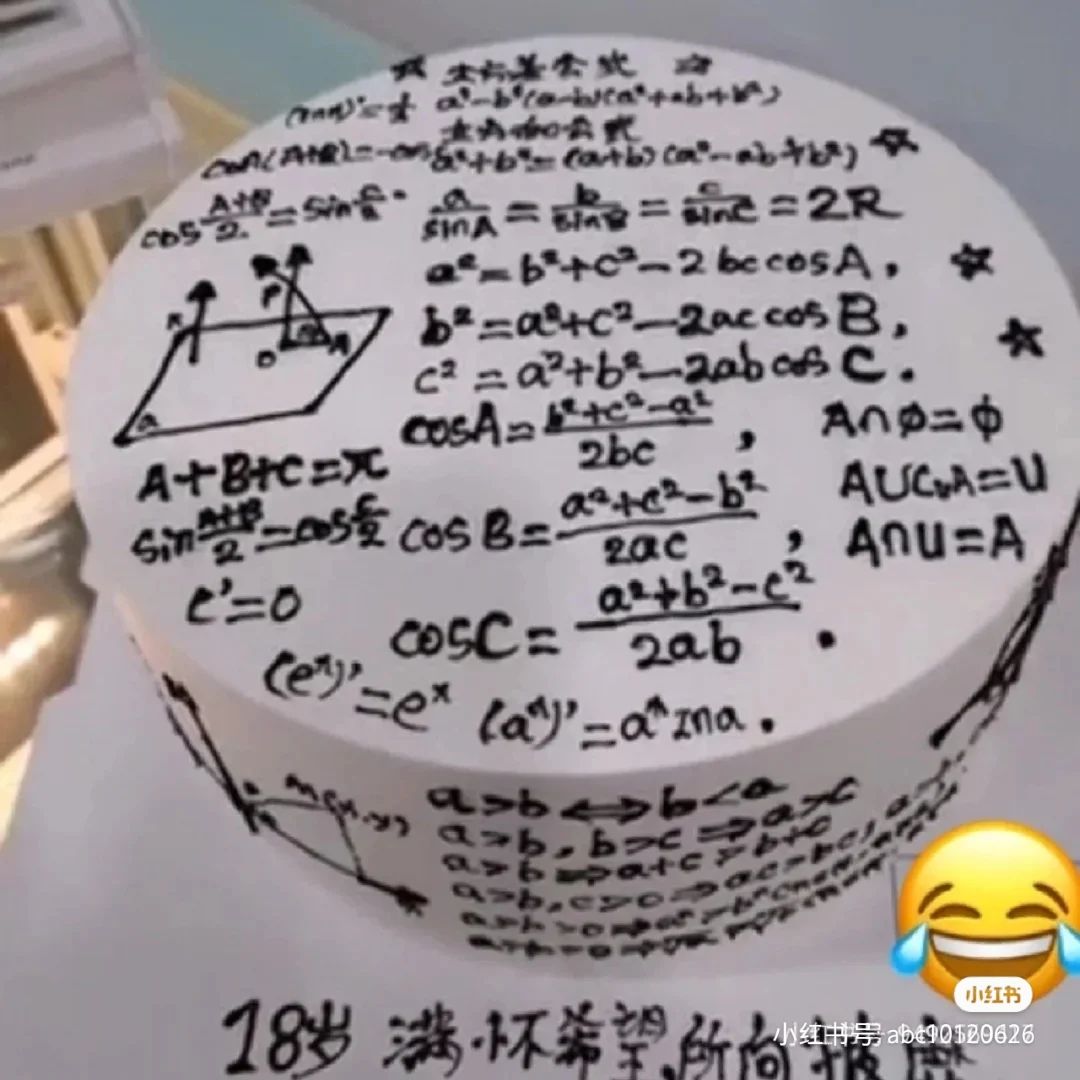 ☆ 立方差公式 ☆
a³-b³(a-b)(a²+ab+b²)
立方和公式
cos(A+B)=-cos
a³+b³=(a+b)(a²-ab+b²) ☆
cos A+B/2 = sin C/2
a/sinA = b/sinB = c/sinC = 2R
a²=b²+c²-2bccosA, ☆
b²=a²+c²-2accosB,
c²=a²+b²-2abcosC. ☆
P
O
A
a
cosA= b²+c²-a²/2bc , A∩φ=φ
A+B+C=π
A∪CᵤA=U
sin A+B/2 = cos C/2
cosB= a²+c²-b²/2ac , A∩U=A
c'=0
cosC= a²+b²-c²/2ab .
(eˣ)'=eˣ (aˣ)'=aˣlna.
M(x,y)
a>b⟺b<a
a>b,b>c⇒a>c
a>b⇒a+c>b+c
a>b,c>0⇒ac>bc,
18岁 满怀希望,所向披靡
小红书
小红书号: